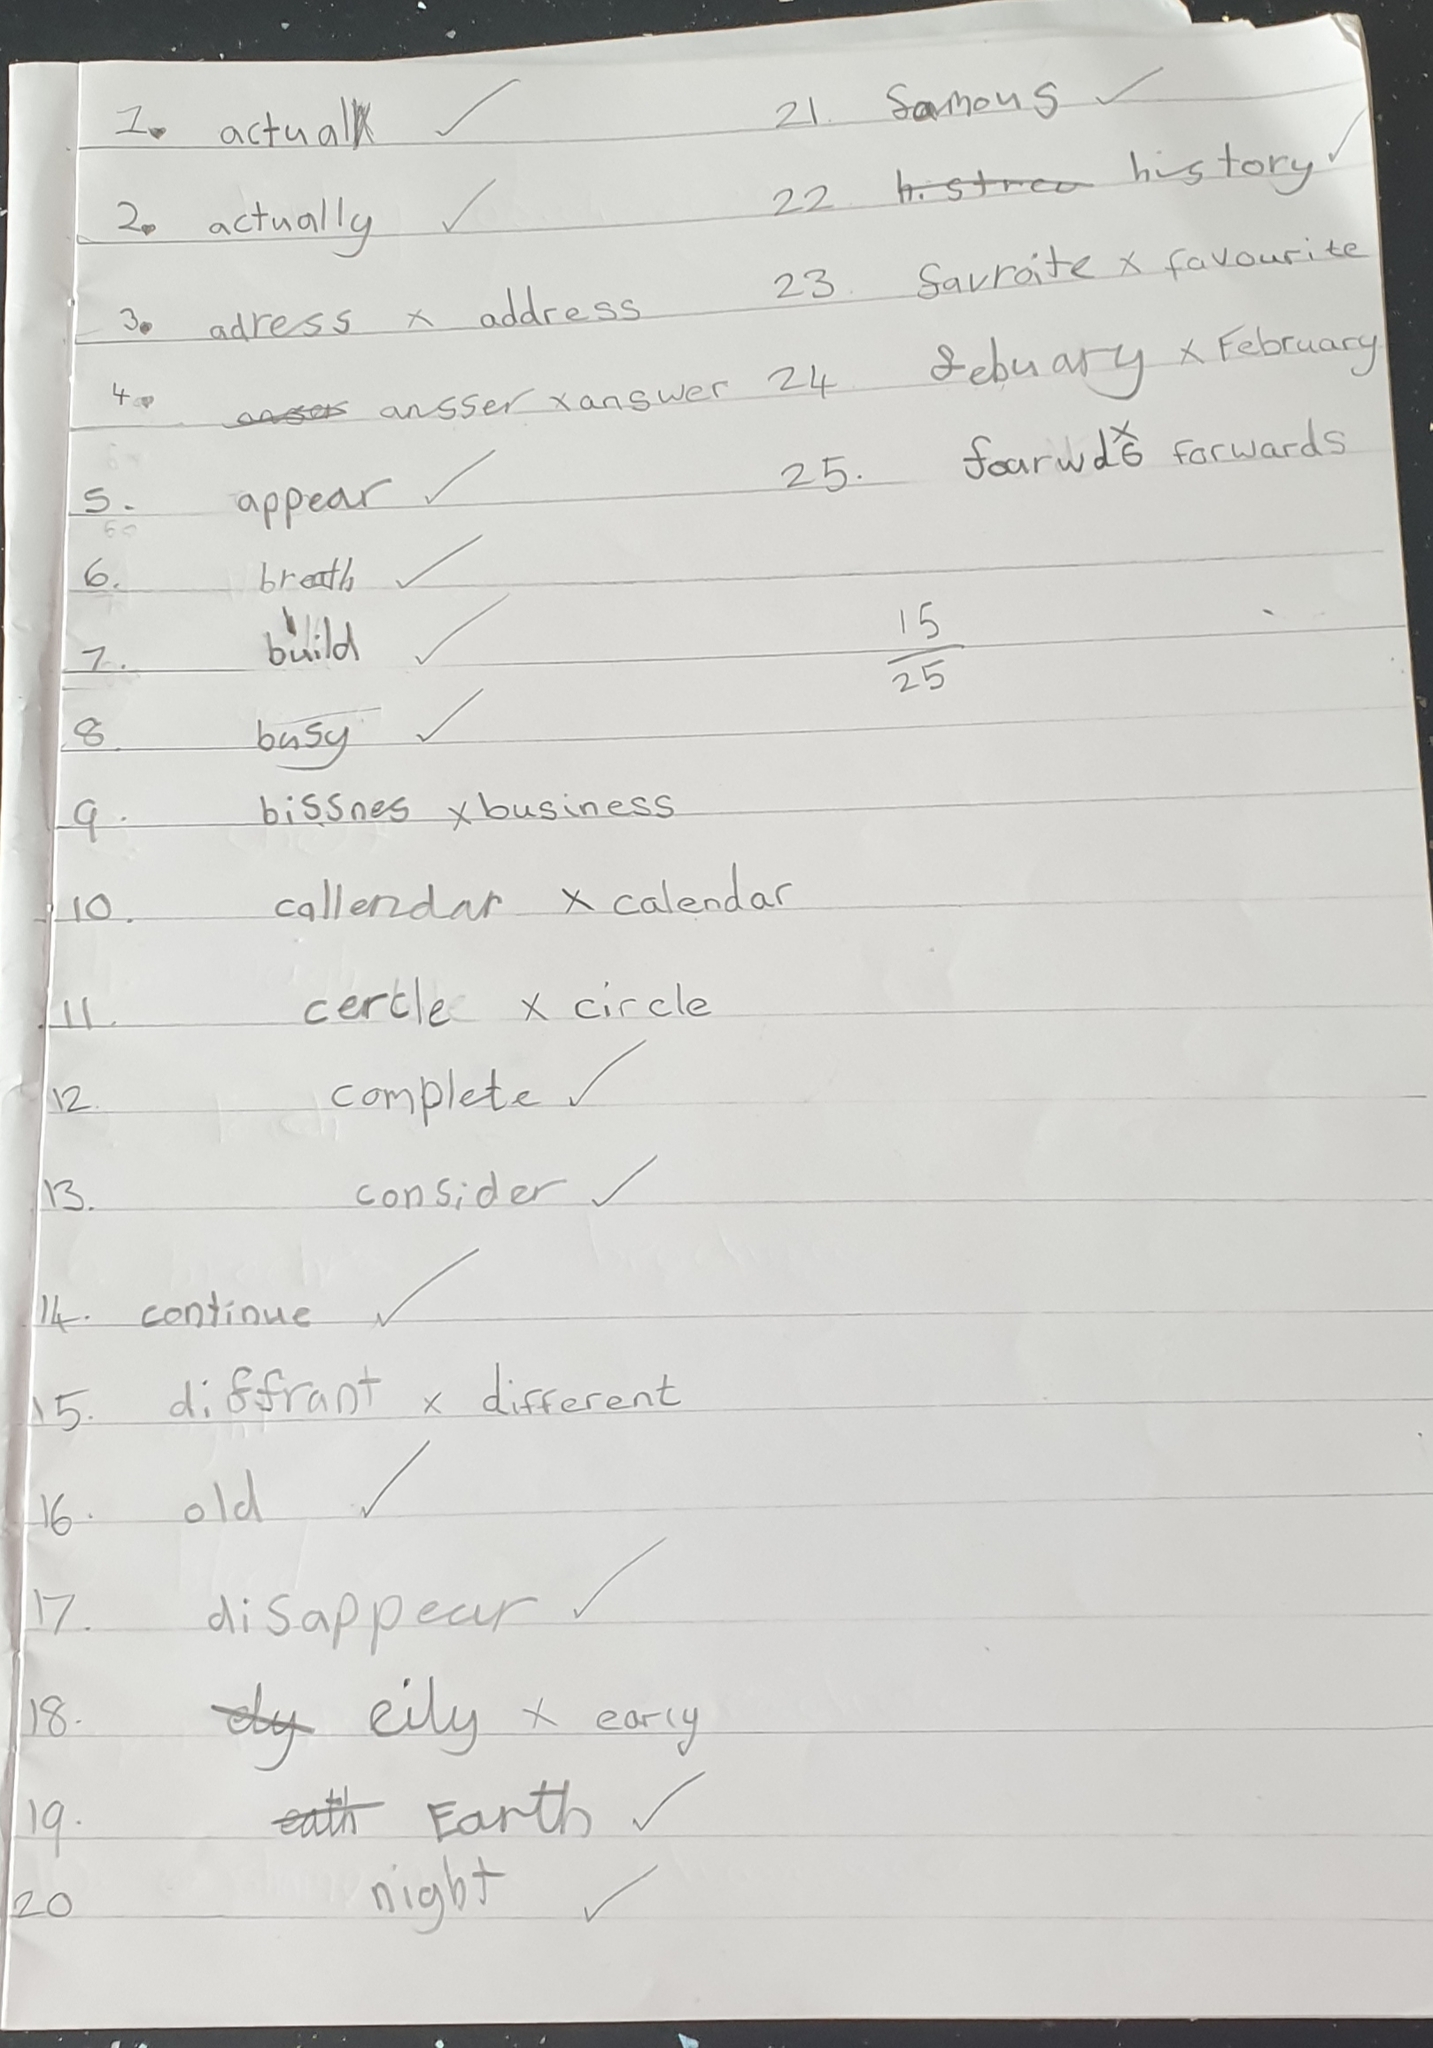 1. actual ✓
2. actually ✓
3. adress x address
4. ansser x answer
5. appear ✓
6. breath ✓
7. build ✓
8. busy ✓
9. bissnes x business
10. callendar x calendar
11. cercle x circle
12. complete ✓
13. consider ✓
14. continue ✓
15. diffrant x different
16. old ✓
17. disappear ✓
18. eily x early
19. eath Earth ✓
20 night ✓
21. famous ✓
22 history ✓
23. favroite x favourite
24 febuary x February
25. x forwards
15
25